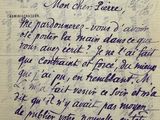 Mon cher Pierre,
me pardonnerez-vous d'avoir
osé porter la main dans ce que
vous avez écrit? je ne l'ai fait
que contraint et forcé, du mieux
que j'ai pu, en tremblant. M.
L. m'est venu voir ce soir et m'a
dit qu'il n'y avait pas moyen
de publier votre nouvelle